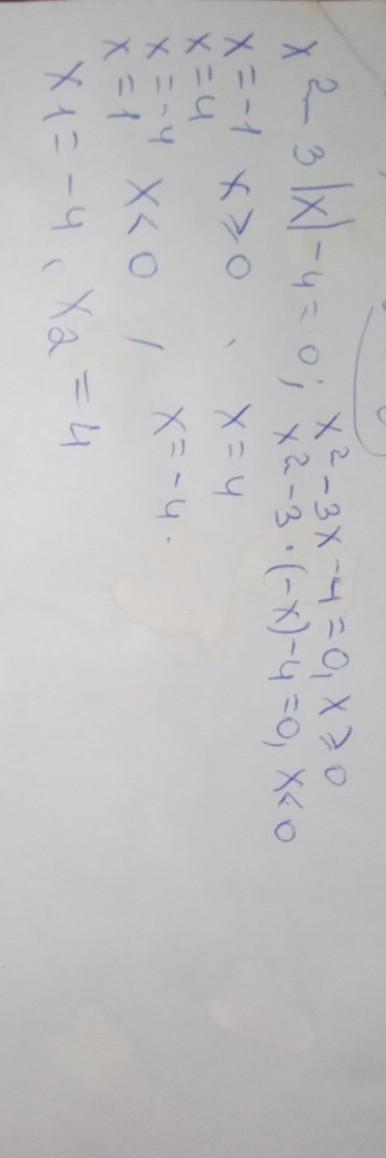 x² - 3|x| - 4 = 0; x² - 3x - 4 = 0, x ⩾ 0
x² - 3 · (-x) - 4 = 0, x < 0
x = -1 x ⩾ 0, x = 4
x = 4
x = -4 x < 0, x = -4.
x = 1
x1 = -4, x2 = 4